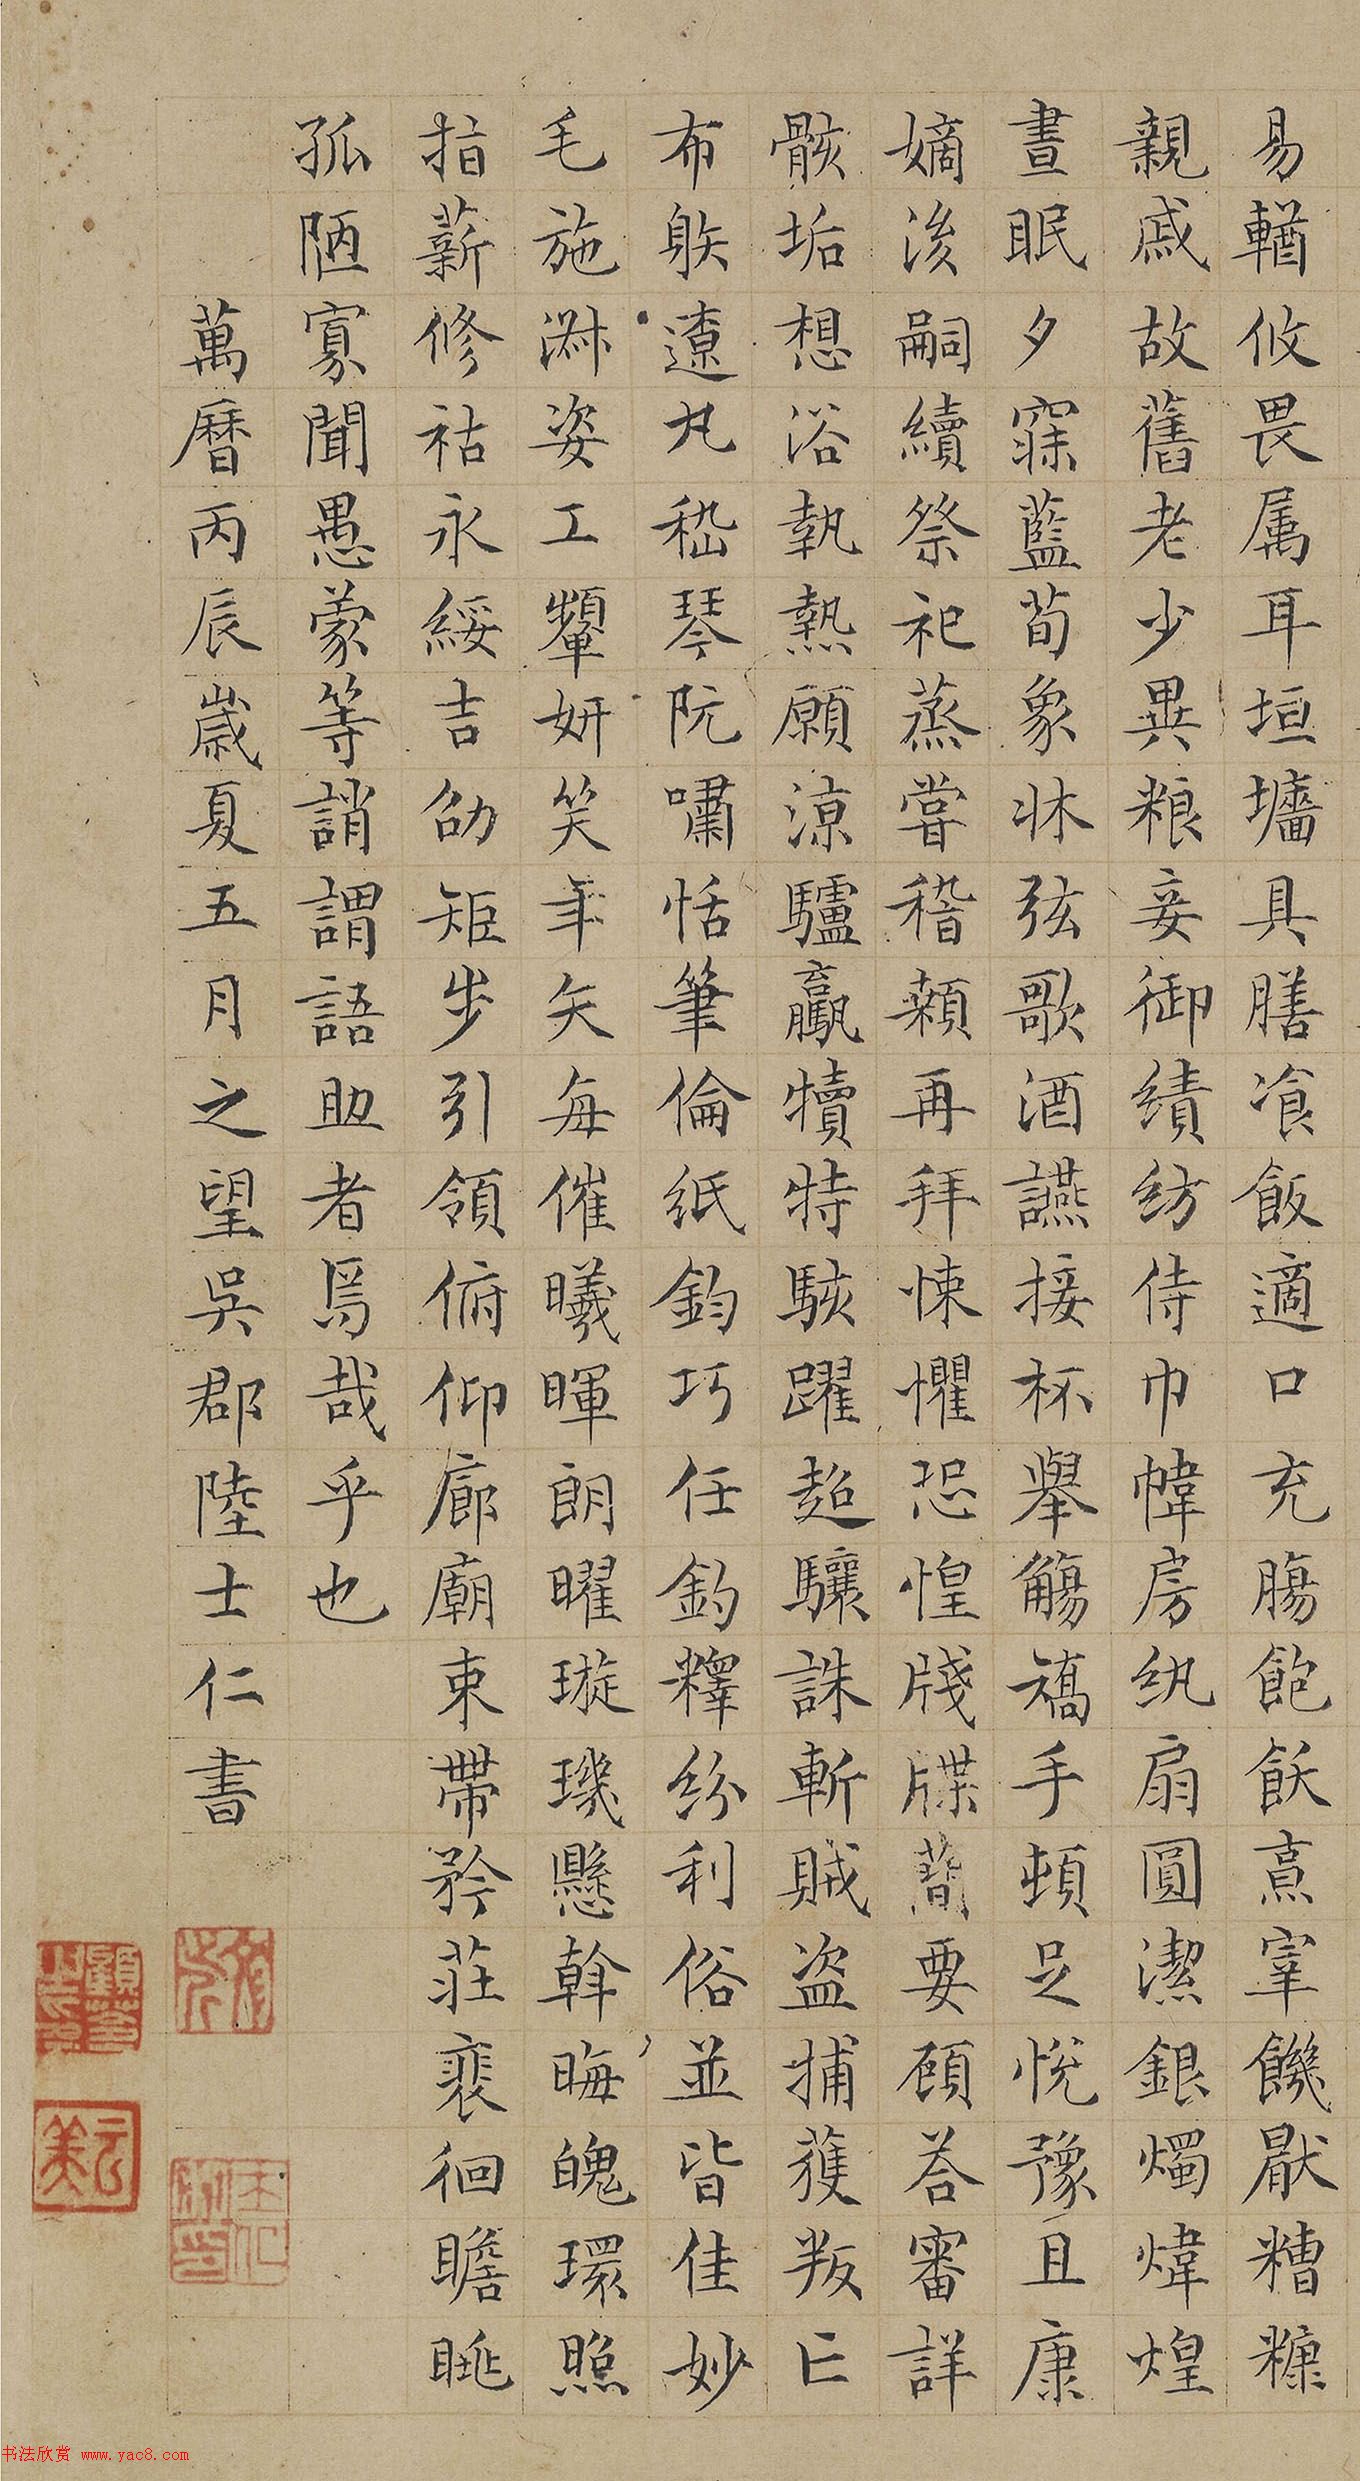 易輶攸畏属耳垣墻具膳飡飯適口充腸飽飫烹宰饑厭糟糠
親戚故舊老少異粮妾御績紡侍巾幃房紈扇圓潔銀燭煒煌
晝眠夕寐藍荀象牀弦歌酒讌接杯舉觴矯手頓足悅豫且康
嫡後嗣續祭祀蒸嘗稽顙再拜悚懼恐惶牋牒蕳要顧荅審詳
骸垢想浴執熱願涼驢驘犢特駭躍超驤誅斬賊盜捕獲叛亡
布躲遼丸嵇琴阮嘯恬筆倫紙鈞巧任釣釋紛利俗並皆佳妙
毛施淋姿工顰妍笑年矢每催曦暉朗曜璇璣懸斡晦魄環照
指薪修祜永綏吉劭矩步引領俯仰廊廟束帶矜莊裴徊瞻眺
孤陋寡聞愚蒙等誚謂語助者焉哉乎也
萬曆丙辰歲夏五月之望吳郡陸士仁書
书法欣赏 www.yac8.com